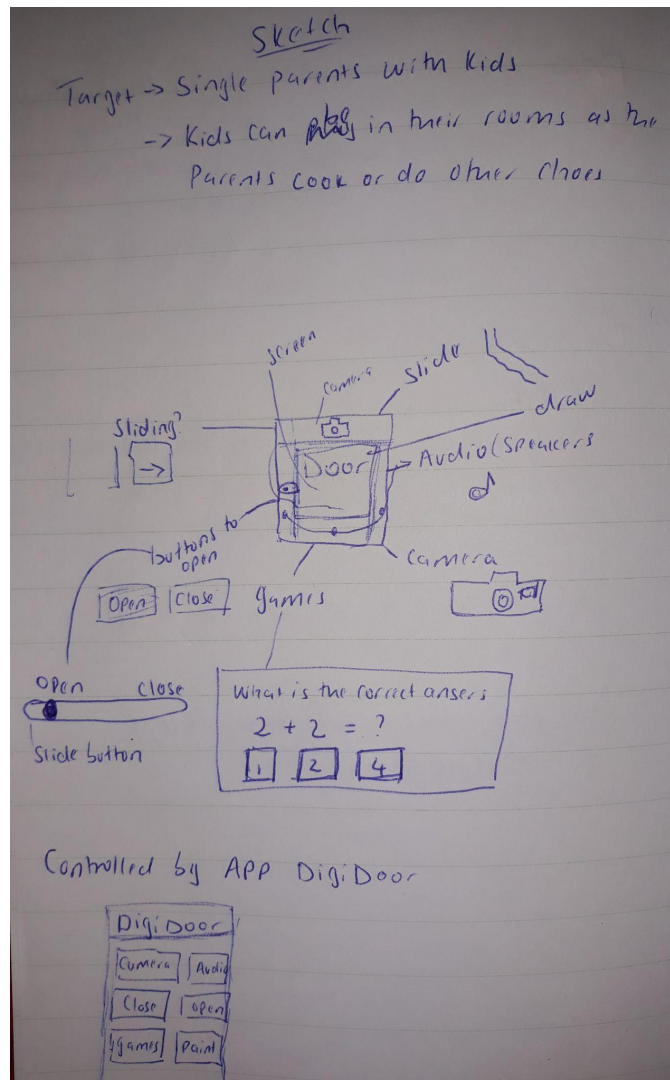 Sketch
Target -> Single parents with Kids
-> Kids can in their rooms as the
Parents cook or do other Choes
Screen
Camera
Slide
draw
Sliding?
Door
Audio(Speakers
buttons to
open
Camera
Open Close
games
Open Close
Slide button
What is the correct ansers
2 + 2 = ?
1 2 4
Controlled by APP DigiDoor
DigiDoor
Camera Audio
Close Open
games Paint